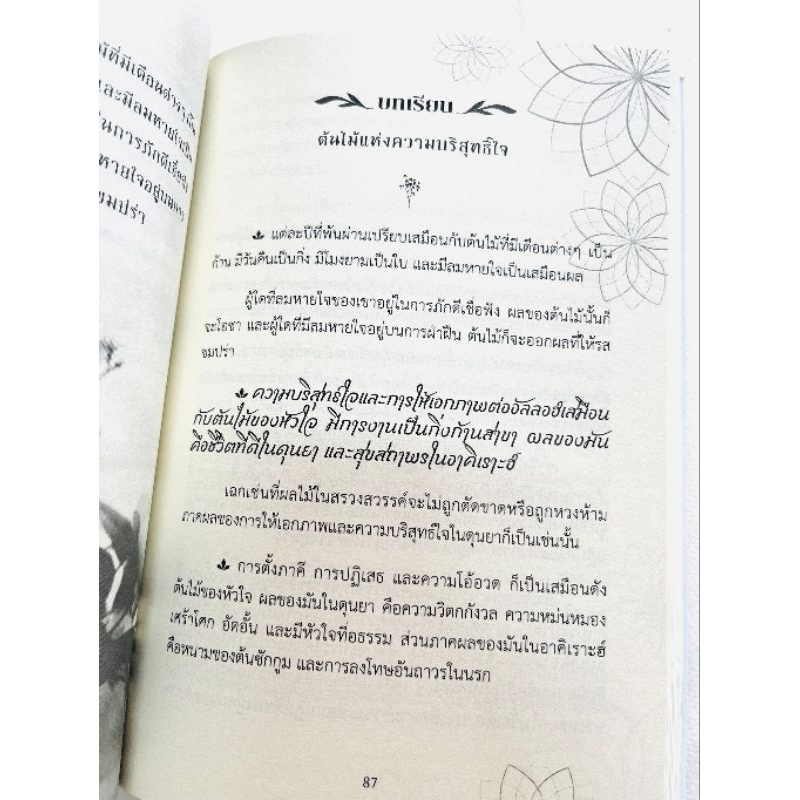 ที่มีเดือนต่างๆ เป็น
และมีลมหายใจเป็น
ในการภักดีเชื่อฟัง
หายใจอยู่บนการ
ขมปร่า
บทเรียน
ต้นไม้แห่งความบริสุทธิ์ใจ
แต่ละปีที่พ้นผ่านเปรียบเสมือนกับต้นไม้ที่มีเดือนต่างๆ เป็น
ก้าน มีวันคืนเป็นกิ่ง มีโมงยามเป็นใบ และมีลมหายใจเป็นเสมือนผล
ผู้ใดที่ลมหายใจของเขาอยู่ในการภักดีเชื่อฟัง ผลของต้นไม้นั้นก็
จะโอชา และผู้ใดที่มีลมหายใจอยู่บนการฝ่าฝืน ต้นไม้ก็จะออกผลที่ให้รส
ขมปร่า
ความบริสุทธิ์ใจและการให้เอกภาพต่ออัลลอฮ์เสมือน
กับต้นไม้ของหัวใจ มีการงานเป็นกิ่งก้านสาขา ผลของมัน
คือชีวิตที่ดีในดุนยา และสุขสถาพรในอาคิเราะฮ์
เฉกเช่นที่ผลไม้ในสรวงสวรรค์จะไม่ถูกตัดขาดหรือถูกหวงห้าม
ภาคผลของการให้เอกภาพและความบริสุทธิ์ใจในดุนยาก็เป็นเช่นนั้น
การตั้งภาคี การปฏิเสธ และความโอ้อวด ก็เป็นเสมือนดัง
ต้นไม้ของหัวใจ ผลของมันในดุนยา คือความวิตกกังวล ความหม่นหมอง
เศร้าโศก อัดอั้น และมีหัวใจที่อธรรม ส่วนภาคผลของมันในอาคิเราะฮ์
คือหนามของต้นซักกูม และการลงโทษอันถาวรในนรก
87